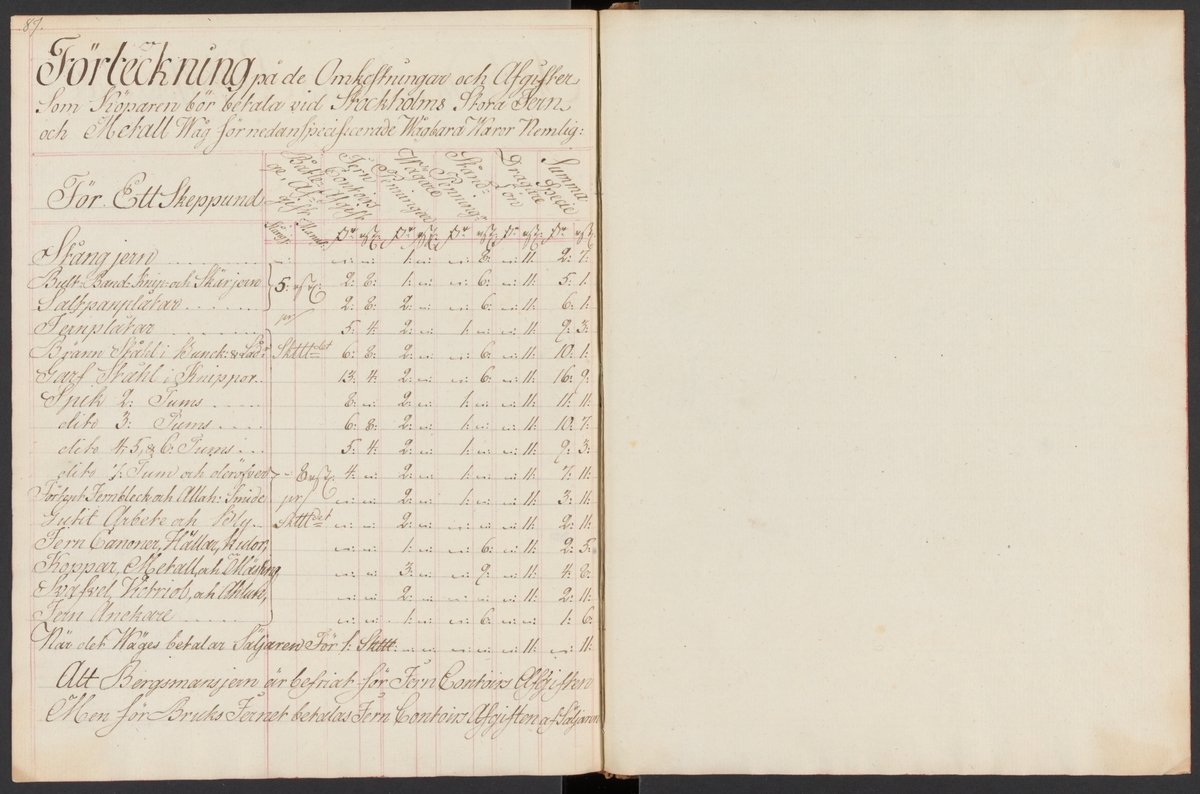 87.
Förteckning på de Omkostningar och Afgifter
Som Köparen bör betala vid Stockholms Stora Jern
och Metall Wåg för nedanspecificerade Wägbara Waror Nemlig:
För Ett Skeppund
Jern Contoirs Afgift
Wägare Penningar
Stånd- Penning:
Dragare Lön
Summa Specie
Stångjern ...... 1: 8: 11: 2: 7:
Bult- Band- Knip- och Skärjern 5: 2: 8: 1: 6: 11: 5: 1:
Saltpanplåtar ...... 2: 8: 2: 6: 11: 6: 1:
Jernplåtar ...... 5: 4: 2: 1: 11: 9: 3:
Bränn Ståhl i Skttt det 6: 8: 2: 6: 11: 10: 1:
Garf Ståhl i Knippor.. 13: 4: 2: 6: 11: 16: 9:
Spik 2: Tums ..... 8: 2: 1: 11: 11: 11:
dito 3: Tums .... 6: 8: 2: 1: 11: 10: 7:
dito 4. 5, & 6: Tums ... 5: 4: 2: 1: 11: 9: 3:
dito 7: Tum och deröfver 8 4: 2: 1: 11: 7: 11:
Förtent Jernbleck och Allah: Smide pr 2: 1: 11: 3: 11:
Gutit Arbete och Bly... Skttt det 2: 11: 2: 11:
Jern Canoner, Hällar, Kulor, 1: 6: 11: 2: 5:
Koppar, Metall, och Mässing, 3: 9: 11: 4: 8:
Svafvel, Victriol, och Ahlun, 2: 11: 2: 11:
Jern Anckare ...... 1: 6: 1: 6:
När det Wäges betalar Säljaren För 1: Skttt: 11: 11:
Att Bergsmansjern är befriat för Jern Contoirs Afgiften
Men för Bruks Jernet betalas Jern Contoirs Afgiften af Säljaren